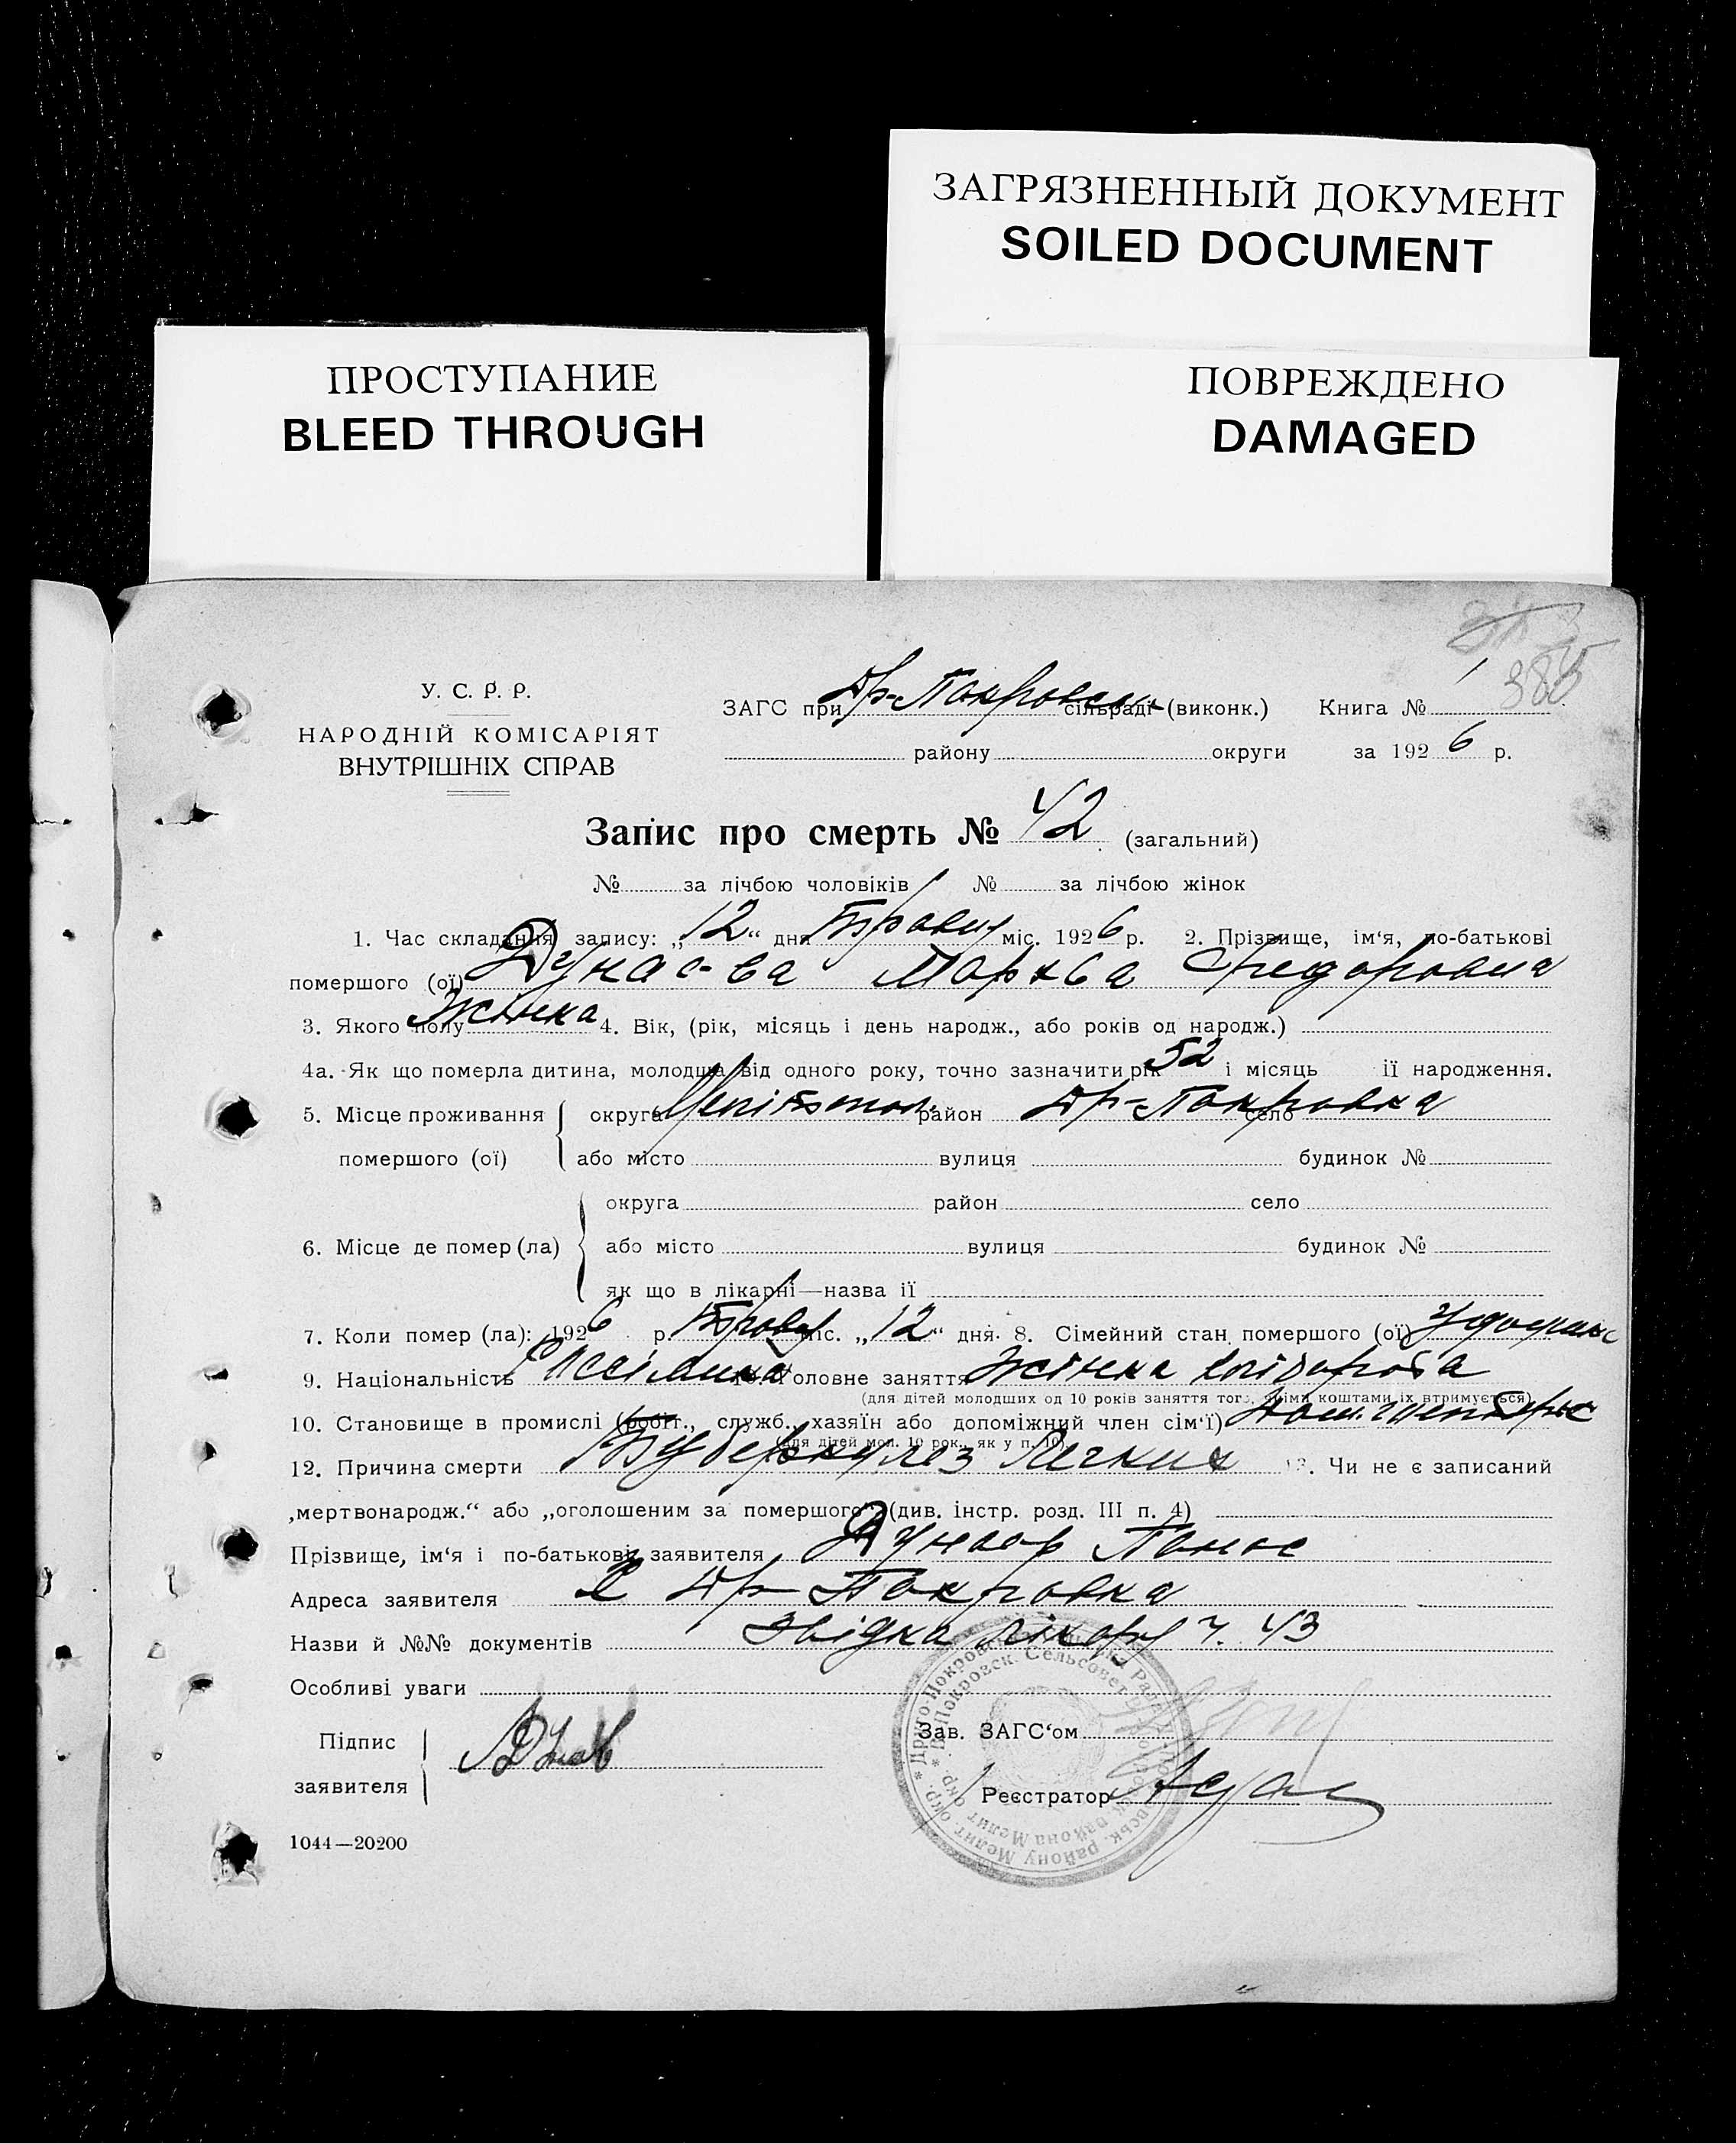 ЗАГРЯЗНЕННЫЙ ДОКУМЕНТ
SOILED DOCUMENT
ПРОСТУПАНИЕ
BLEED THROUGH
ПОВРЕЖДЕНО
DAMAGED
У. С. Р. Р.
НАРОДНІЙ КОМІСАРІЯТ
ВНУТРІШНІХ СПРАВ
ЗАГС при Др-Покровськ сільраді (виконк.) Книга № 1
району округи за 1926 р.
Запис про смерть № 42 (загальний)
№ за лічбою чоловіків № за лічбою жінок
1. Час складання запису: „12“ дня Травня міс. 1926 р. 2. Прізвище, ім‘я, по-батькові
помершого (ої) Мархва Федоровна
3. Якого полу Жінка 4. Вік, (рік, місяць і день народж., або років од народж.)
4а. Як що померла дитина, молодша від одного року, точно зазначити рік 52 і місяць її народження.
5. Місце проживання округа район Др-Покровка село
помершого (ої) або місто вулиця будинок №
округа район село
6. Місце де помер (ла) або місто вулиця будинок №
як що в лікарні—назва її
7. Коли помер (ла): 1926 р. Травня міс. „12“ дня. 8. Сімейний стан помершого (ої)
9. Національність Головне заняття Жінка хлібороба
(для дітей молодших од 10 років заняття того, якіми коштами їх втримується)
10. Становище в промислі (робіт., служб., хазяїн або допоміжний член сім‘ї)
(для дітей мол. 10 рок., як у п. 10)
12. Причина смерти Туберкулез Легких 13. Чи не є записаний
„мертвонародж.“ або „оголошеним за помершого“ (див. інстр. розд. III п. 4)
Прізвище, ім‘я і по-батькові заявителя Панас
Адреса заявителя Др-Покровка
Назви й №№ документів Звідка лікаря ч. 43
Особливі уваги
Підпис
заявителя
Зав. ЗАГС‘ом
Реєстратор
1044—20200